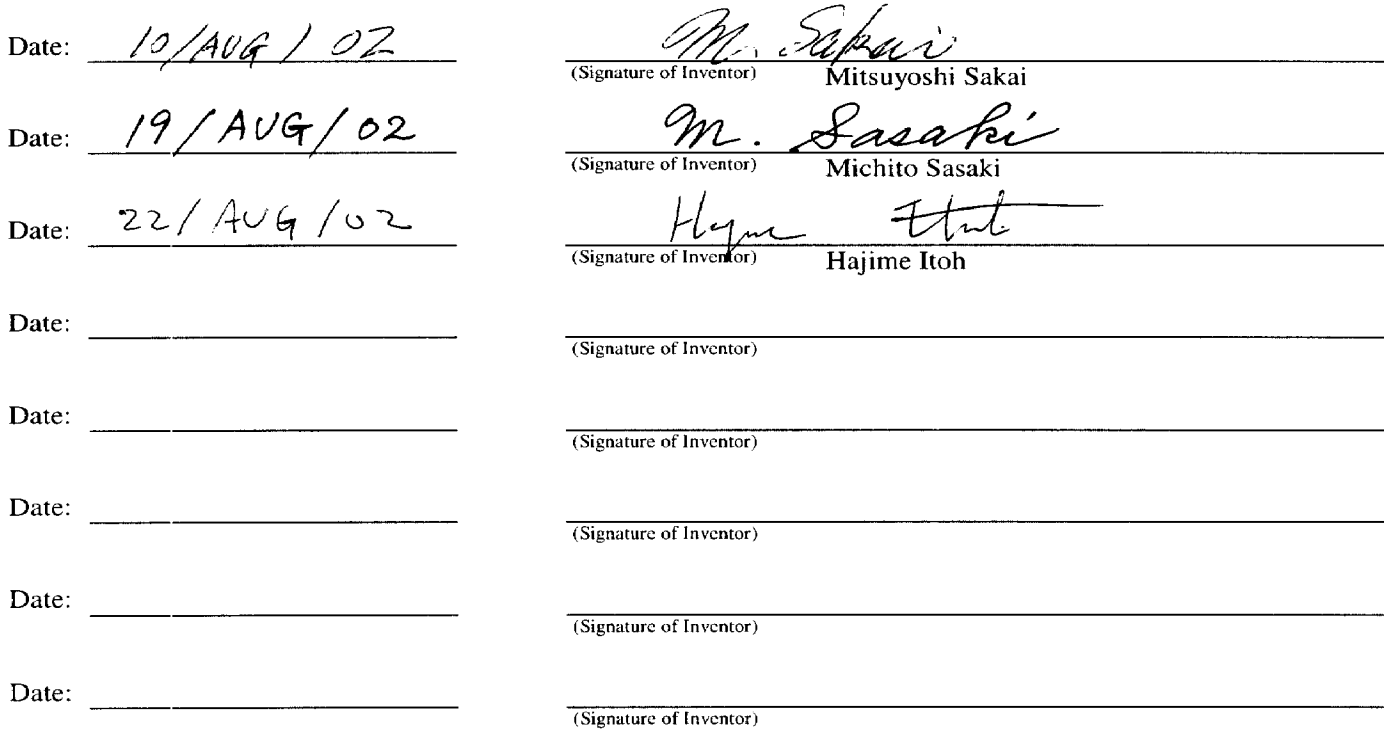 Date: 10/AUG/02 M. Sakai
(Signature of Inventor) Mitsuyoshi Sakai
Date: 19/AUG/02 M. Sasaki
(Signature of Inventor) Michito Sasaki
Date: 22/AUG/02 Hajime Itoh
(Signature of Inventor) Hajime Itoh
Date:
(Signature of Inventor)
Date:
(Signature of Inventor)
Date:
(Signature of Inventor)
Date:
(Signature of Inventor)
Date:
(Signature of Inventor)